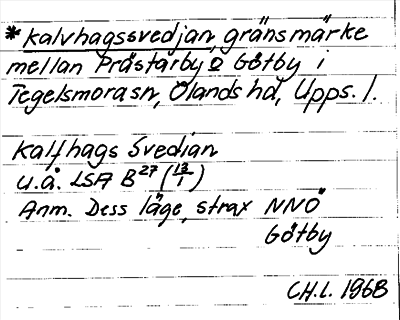 *kalvhagssvedjan, gränsmärke
mellan Prästarby o Götby i
Tegelsmora sn, Ölands hd, Upps. l.
Kalfhags Svedian
u.å. LSA B27 (13/1)
Anm. Dess läge, strax NNÖ
Götby
CH.L. 1968